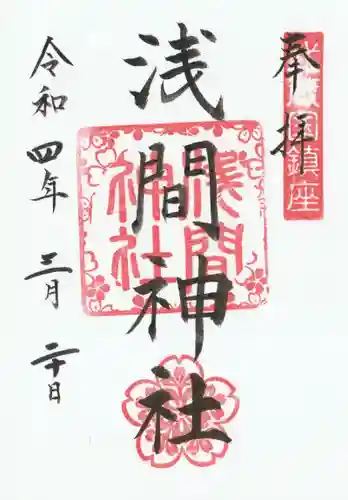 奉拝
国鎮座
浅間神社
浅間神社
令和四年三月二十日